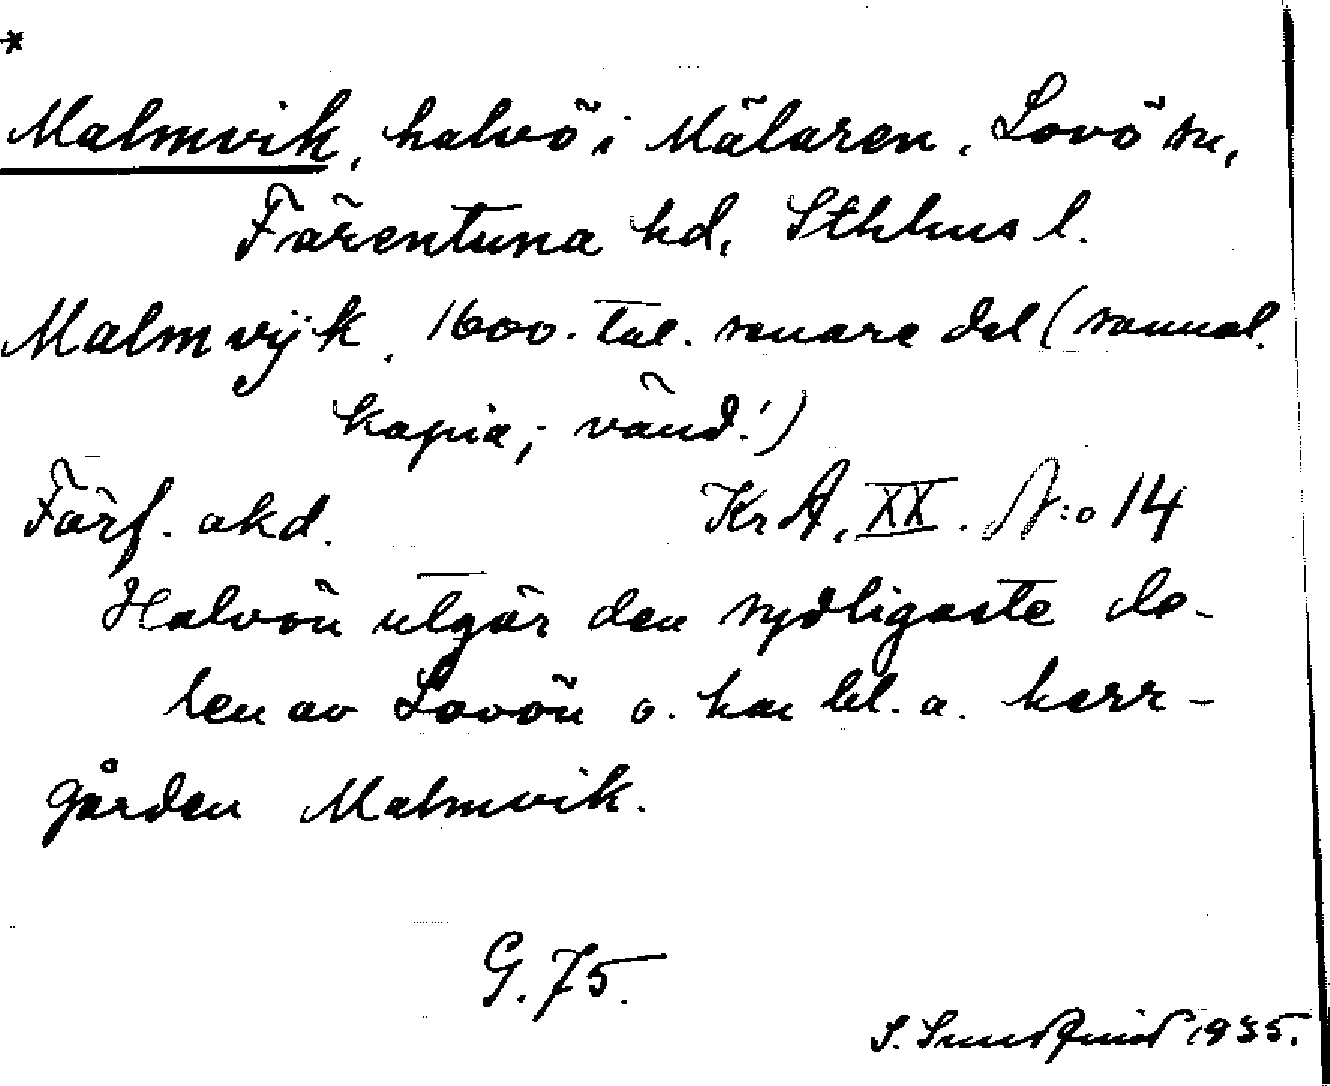 *
Malmvik, halvö i Mälaren, Lovö sn,
Färentuna hd, Sthlms l.
Malmvijk, 1600-tal. senare del (samml.
kopia; vänd!)
Förf. akd. KrA, XX. N:o 14
Halvön utgör den sydligaste de-
len av Lovön o. har bl. a. herr-
gården Malmvik.
G. 75.
S. 1935.